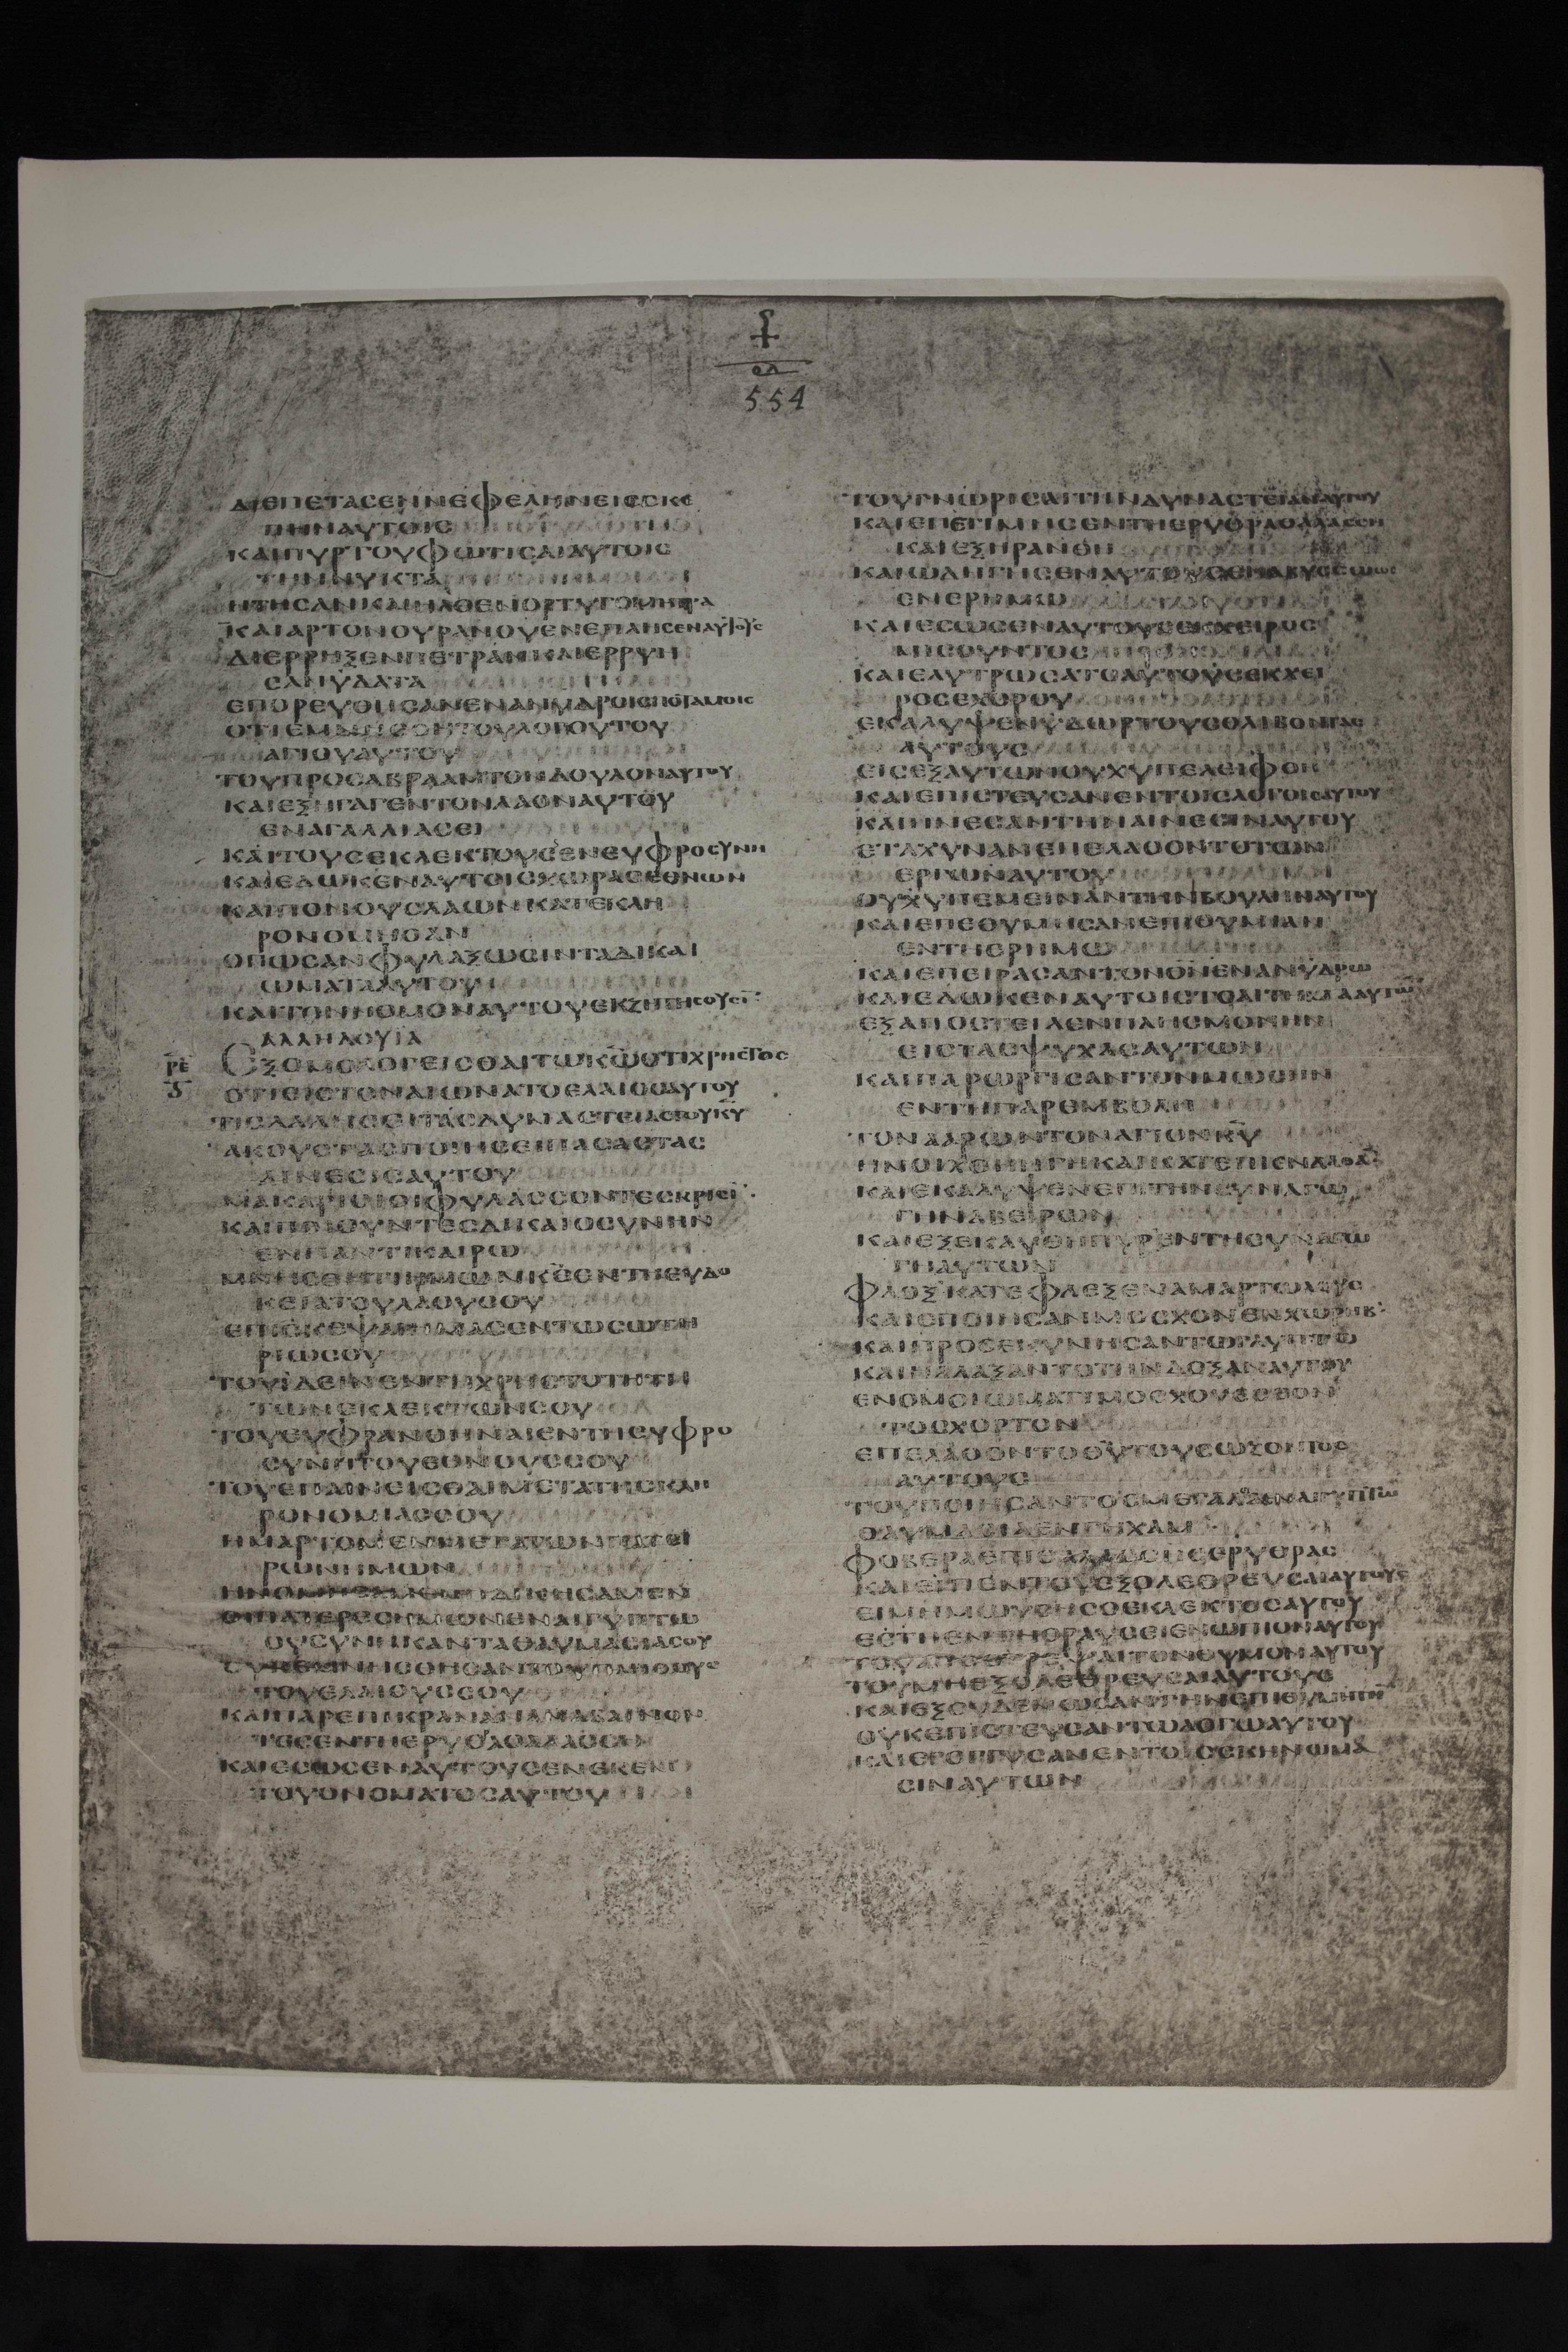 554
ΔΙΕΠΕΤΑCΕΝΝΕΦΕΛΗΝΕΙCCΚΕ
ΠΗΝΑΥΤΟΙC
ΚΑΙΠΥΡΤΟΥΦΩΤΙCΑΙΑΥΤΟΙC
ΤΗΝΝΥΚΤΑ
ΗΤΗCΑΝΚΑΙΗΛΘΕΝΟΡΤΥΓΟΜΗΤΡΑ
ΚΑΙΑΡΤΟΝΟΥΡΑΝΟΥΕΝΕΠΛΗCΕΝΑΥΤΟΥC
ΔΙΕΡΡΗΞΕΝΠΕΤΡΑΝΚΑΙΕΡΡΥΗ
CΑΝΥΔΑΤΑ
ΕΠΟΡΕΥΘΗCΑΝΕΝΑΝΥΔΡΟΙCΠΟΤΑΜΟΙC
ΟΤΙΕΜΝΗCΘΗΤΟΥΛΟΓΟΥΤΟΥ
ΑΓΙΟΥΑΥΤΟΥ
ΤΟΥΠΡΟCΑΒΡΑΑΜΤΟΝΔΟΥΛΟΝΑΥΤΟΥ
ΚΑΙΕΞΗΓΑΓΕΝΤΟΝΛΑΟΝΑΥΤΟΥ
ΕΝΑΓΑΛΛΙΑCΕΙ
ΚΑΙΤΟΥCΕΚΛΕΚΤΟΥCΕΝΕΥΦΡΟCΥΝΗ
ΚΑΙΕΔΩΚΕΝΑΥΤΟΙCΧΩΡΑCΕΘΝΩΝ
ΚΑΙΠΟΝΟΥCΛΑΩΝΚΑΤΕΚΛΗ
ΡΟΝΟΜΗCΑΝ
ΟΠΩCΑΝΦΥΛΑΞΩCΙΝΤΑΔΙΚΑΙ
ΩΜΑΤΑΑΥΤΟΥ
ΚΑΙΤΟΝΝΟΜΟΝΑΥΤΟΥΕΚΖΗΤΗCΟΥCΙ
ΑΛΛΗΛΟΥΙΑ
ΡΕ
ΕΞΟΜΟΛΟΓΕΙCΘΑΙΤΩΚΩΟΤΙΧΡΗCΤΟC
ΟΤΙΕΙCΤΟΝΑΙΩΝΑΤΟΕΛΑΙΟCΑΥΤΟΥ
ΤΙCΛΑΛΗCΕΙΤΑCΔΥΝΑCΤΕΙΑCΤΟΥΚΥ
ΑΚΟΥCΤΑCΠΟΙΗCΕΙΠΑCΑCΤΑC
ΑΙΝΕCΙCΑΥΤΟΥ
ΜΑΚΑΡΙΟΙΟΙΦΥΛΑCCΟΝΤΕCΚΡΙCΙ
ΚΑΙΠΟΙΟΥΝΤΕCΔΙΚΑΙΟCΥΝΗΝ
ΕΝΠΑΝΤΙΚΑΙΡΩ
ΜΝΗCΘΗΤΙΗΜΩΝΚΕΕΝΤΗΕΥΔΟ
ΚΕΙΑΤΟΥΛΑΟΥCΟΥ
ΕΠΙCΚΕΨΑΙΗΜΑCΕΝΤΩCΩΤΗ
ΡΙΩCΟΥ
ΤΟΥΙΔΕΙΝΕΝΤΗΧΡΗCΤΟΤΗΤΗ
ΤΩΝΕΚΛΕΚΤΩΝCΟΥ
ΤΟΥΕΥΦΡΑΝΘΗΝΑΙΕΝΤΗΕΥΦΡΟ
CΥΝΗΤΟΥΕΘΝΟΥCCΟΥ
ΤΟΥΕΠΑΙΝΕΙCΘΑΙΜΕΤΑΤΗCΚΛΗ
ΡΟΝΟΜΙΑCCΟΥ
ΗΜΑΡΤΟΜΕΝΜΕΤΑΤΩΝΠΑΤΕ
ΡΩΝΗΜΩΝ
ΗΝΟΜΗCΑΜΕΝΗΔΙΚΗCΑΜΕΝ
ΟΙΠΑΤΕΡΕCΗΜΩΝΕΝΑΙΓΥΠΤΩ
ΟΥCΥΝΗΚΑΝΤΑΘΑΥΜΑCΙΑCΟΥ
ΤΟΥΕΛΑΙΟΥCCΟΥ
ΚΑΙΠΑΡΕΠΙΚΡΑΝΑΝΑΝΑΒΑΙΝΟΝ
ΤΕCΕΝΤΗΕΡΥΘΡΑΘΑΛΑCCΗ
ΚΑΙΕCΩCΕΝΑΥΤΟΥCΕΝΕΚΕΝ
ΤΟΥΟΝΟΜΑΤΟCΑΥΤΟΥ
ΤΟΥΓΝΩΡΙCΑΙΤΗΝΔΥΝΑCΤΕΙΑΝΑΥΤΟΥ
ΚΑΙΕΠΕΤΙΜΗCΕΝΤΗΕΡΥΘΡΑΘΑΛΑCCΗ
ΚΑΙΕΞΗΡΑΝΘΗ
ΚΑΙΩΔΗΓΗCΕΝΑΥΤΟΥCΕΝΑΒΥCCΩΩC
ΕΝΕΡΗΜΩ
ΚΑΙΕCΩCΕΝΑΥΤΟΥCΕΚΧΕΙΡΟC
ΜΙCΟΥΝΤΟC
ΚΑΙΕΛΥΤΡΩCΑΤΟΑΥΤΟΥCΕΚΧΕΙ
ΡΟCΕΧΘΡΟΥ
ΕΚΑΛΥΨΕΝΥΔΩΡΤΟΥCΘΛΙΒΟΝΤΑC
ΑΥΤΟΥC
ΕΙCΕΞΑΥΤΩΝΟΥΧΥΠΕΛΕΙΦΘΗ
ΚΑΙΕΠΙCΤΕΥCΑΝΕΝΤΟΙCΛΟΓΟΙCΑΥΤΟΥ
ΚΑΙΗΝΕCΑΝΤΗΝΑΙΝΕCΙΝΑΥΤΟΥ
ΕΤΑΧΥΝΑΝΕΠΕΛΑΘΟΝΤΟΤΩΝ
ΕΡΓΩΝΑΥΤΟΥ
ΟΥΧΥΠΕΜΕΙΝΑΝΤΗΝΒΟΥΛΗΝΑΥΤΟΥ
ΚΑΙΕΠΕΘΥΜΗCΑΝΕΠΙΘΥΜΙΑΝ
ΕΝΤΗΕΡΗΜΩ
ΚΑΙΕΠΕΙΡΑCΑΝΤΟΝΘΝΕΝΑΝΥΔΡΩ
ΚΑΙΕΔΩΚΕΝΑΥΤΟΙCΤΟΑΙΤΗΜΑΑΥΤΩ
ΕΞΑΠΕCΤΕΙΛΕΝΠΛΗCΜΟΝΗΝ
ΕΙCΤΑCΨΥΧΑCΑΥΤΩΝ
ΚΑΙΠΑΡΩΡΓΙCΑΝΤΟΝΜΩCΗΝ
ΕΝΤΗΠΑΡΕΜΒΟΛΗ
ΤΟΝΑΑΡΩΝΤΟΝΑΓΙΟΝΚΥ
ΚΑΙΕΚΑΛΥΨΕΝΕΠΙΤΗΝCΥΝΑΓΩ
ΓΗΝΑΒΕΙΡΩΝ
ΚΑΙΕΞΕΚΑΥΘΗΠΥΡΕΝΤΗCΥΝΑΓΩ
ΓΗΑΥΤΩΝ
ΦΛΟΞΚΑΤΕΦΛΕΞΕΝΑΜΑΡΤΩΛΟΥC
ΚΑΙΕΠΟΙΗCΑΝΜΟCΧΟΝΕΝΧΩΡΗΒ
ΚΑΙΠΡΟCΕΚΥΝΗCΑΝΤΩΓΛΥΠΤΩ
ΚΑΙΗΛΛΑΞΑΝΤΟΤΗΝΔΟΞΑΝΑΥΤΟΥ
ΕΝΟΜΟΙΩΜΑΤΙΜΟCΧΟΥΕCΘΟΝ
ΤΟCΧΟΡΤΟΝ
ΕΠΕΛΑΘΟΝΤΟΘΥΤΟΥCΩΖΟΝΤΟC
ΑΥΤΟΥC
ΤΟΥΠΟΙΗCΑΝΤΟCΜΕΓΑΛΑΕΝΑΙΓΥΠΤΩ
ΘΑΥΜΑCΙΑΕΝΓΗΧΑΜ
ΦΟΒΕΡΑΕΠΙΘΑΛΑCCΗCΕΡΥΘΡΑC
ΚΑΙΕΙΠΕΝΤΟΥΕΞΟΛΕΘΡΕΥCΑΙΑΥΤΟΥC
ΕΙΜΗΜΩΥCΗCΟΕΚΛΕΚΤΟCΑΥΤΟΥ
ΕCΤΗΕΝΤΗΘΡΑΥCΕΙΕΝΩΠΙΟΝΑΥΤΟΥ
ΤΟΥΑΠΟCΤΡΕΨΑΙΤΟΝΘΥΜΟΝΑΥΤΟΥ
ΤΟΥΜΗΕΞΟΛΕΘΡΕΥCΑΙΑΥΤΟΥC
ΟΥΚΕΠΙCΤΕΥCΑΝΤΩΛΟΓΩΑΥΤΟΥ
ΚΑΙΕΓΟΓΓΥCΑΝΕΝΤΟΙCCΚΗΝΩΜΑ
CΙΝΑΥΤΩΝ